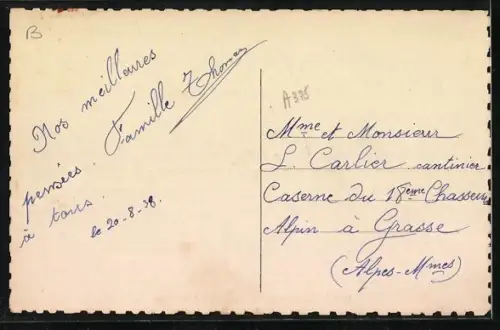 B
Nos meilleures
pensées. Famille Thomas
à tous.
le 20-8-38
A335
Mme et Monsieur
L. Carlier cantinier
Caserne du 18ème Chasseurs
Alpin à Grasse
(Alpes-Mmes)